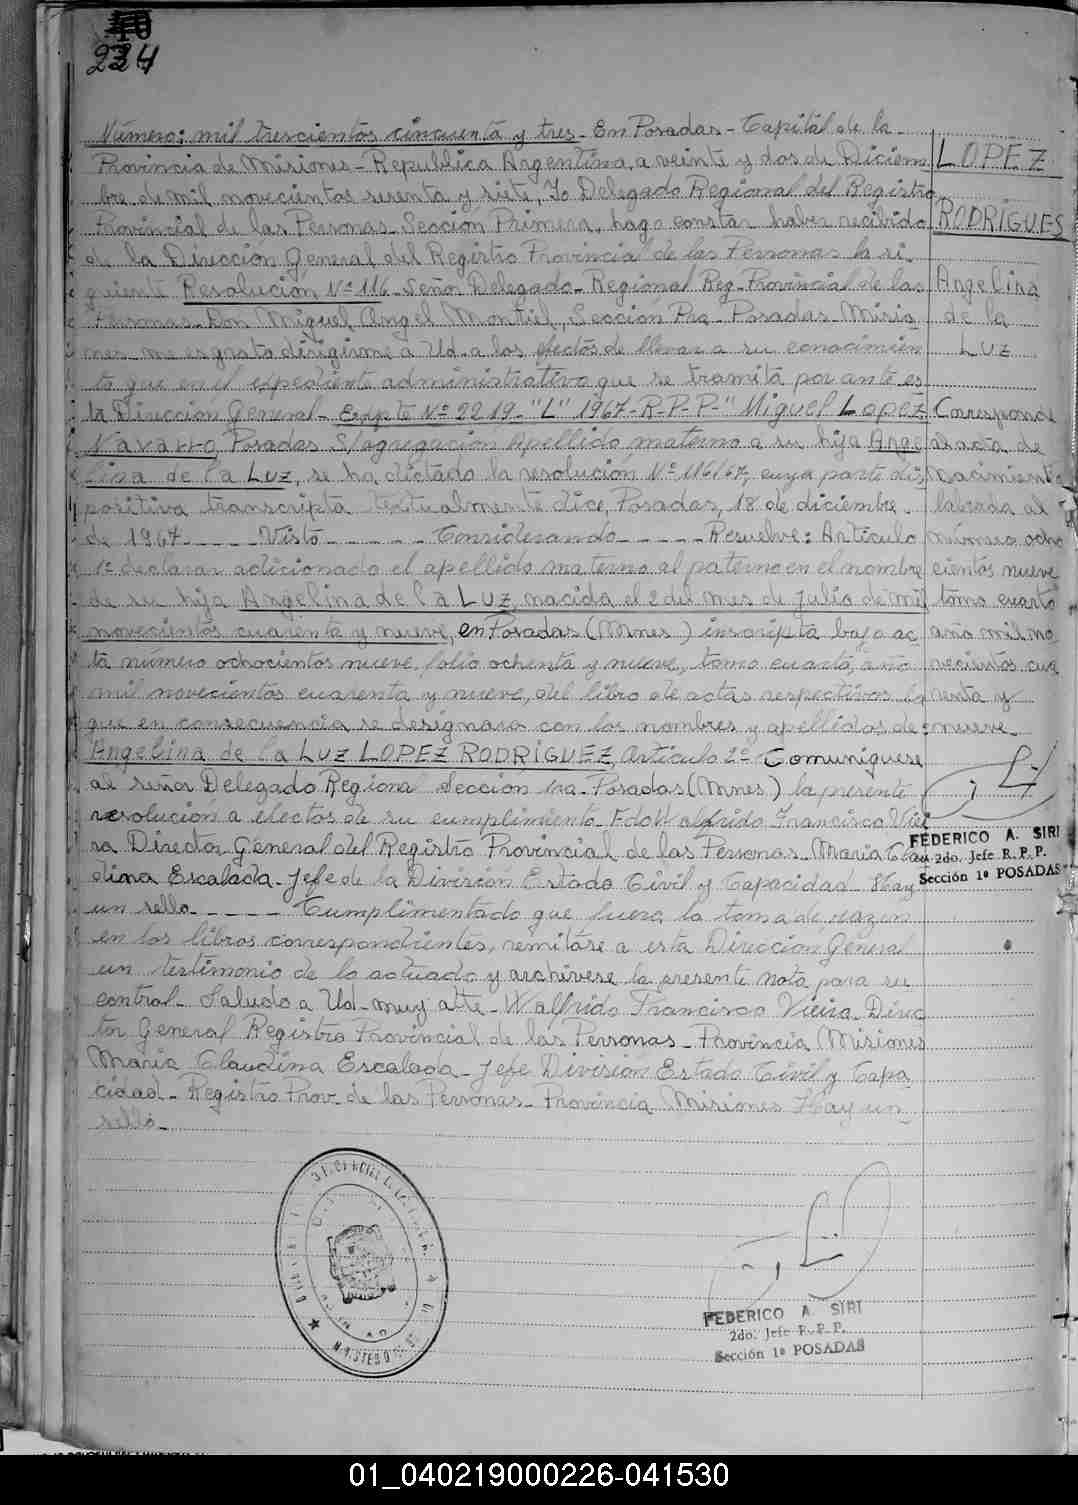 224
Número: mil trescientos cincuenta y tres - En Posadas - Capital de la
Provincia de Misiones - Republica Argentina, a veinte y dos de Diciem
bre de mil novecientos sesenta y siete, Yo Delegado Regional del Registro
Provincial de las Personas Sección Primera, hago constar haber recibido
de la Dirección General del Registro Provincial de las Personas la si-
guiente Resolución Nº 116 - Señor Delegado - Regional Reg - Provincial de las
Personas - Don Miguel Angel Montiel, Sección Pra - Posadas - Misio
nes - me es grato dirigirme a Ud - a los efectos de llevar a su conocimien
to que en el expediente administrativo que se tramita por ante es
ta Dirección General - Expte Nº 2219 - "L" 1967 - R - P - P - "Miguel Lopez
Navarro, Posadas S/agregación Apellido materno a su hija Ange
lina de la Luz, se ha dictado la resolución Nº 116/67, cuya parte dis
positiva transcripta textualmente dice, Posadas, 18 de diciembre -
de 1967 - - - - Visto - - - - - Considerando - - - - - Resuelve: Articulo
1º declarar adicionado el apellido materno al paterno en el nombre
de su hija Angelina de la Luz, nacida el 2 del mes de julio de mil
novecientos cuarenta y nueve, en Posadas (Mnes) inscripta bajo ac
ta número ochocientos nueve, folio ochenta y nueve, tomo cuarto, año
mil novecientos cuarenta y nueve, del libro de actas respectivos la
que en consecuencia se designara con los nombres y apellidos de:
Angelina de la LUZ LOPEZ RODRIGUEZ, Articulo 2º - Comuniquese
al señor Delegado Regional Sección 1ra - Posadas (Mnes) la presente
resolución a efectos de su cumplimiento - Fdo Walfrido Francisco Viei
ra Director General del Registro Provincial de las Personas - Maria Clau
dina Escalada - Jefe de la División Estado Civil y Capacidad - Hay
un sello - - - - - Cumplimentado que fuera la toma de razon
en los libros correspondientes, remitase a esta Direccion General
un testimonio de lo actuado y archivese la presente nota para su
control - Saludo a Ud - muy atte - Walfrido Francisco Vieira - Direc
tor General Registro Provincial de las Personas - Provincia Misiones
Maria Claudina Escalada - Jefe División Estado Civil y Capa
cidad - Registro Prov - de las Personas - Provincia Misiones Hay un
sello -
LOPEZ
RODRIGUES
Angelina
de la
LUZ
Corresponde
al acta de
nacimiento
labrada al
número ocho
cientos nueve
tomo cuarto
año mil no
vecientos cua
renta y
nueve -
FEDERICO A. SIRI
2do. Jefe R. P. P.
Sección 1ª POSADAS
FEDERICO A. SIRI
2do. Jefe R. P. P.
Sección 1ª POSADAS
01_040219000226-041530